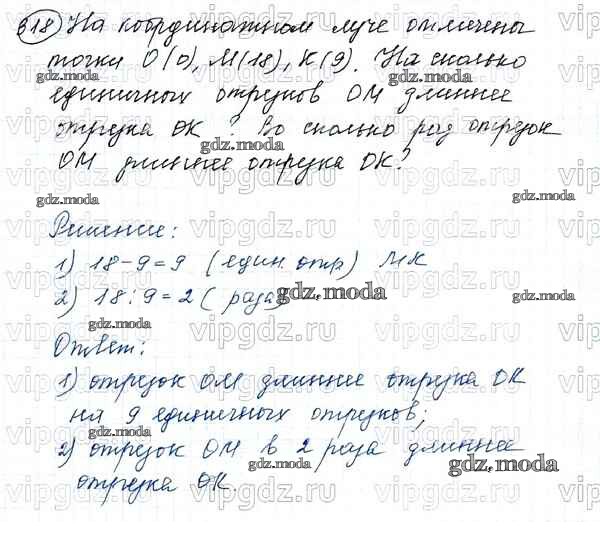 318) На координатном луче отмечены
точки О(0), М(18), К(9). На сколько
единичных отрезков ОМ длиннее
отрезка ОК? Во сколько раз отрезок
ОМ длиннее отрезка ОК?
Решение:
1) 18-9=9 (един. отр) МК
2) 18:9=2 (раза)
Ответ:
1) отрезок ОМ длиннее отрезка ОК
на 9 единичных отрезков;
2) отрезок ОМ в 2 раза длиннее
отрезка ОК.
gdz.moda
vipgdz.ru